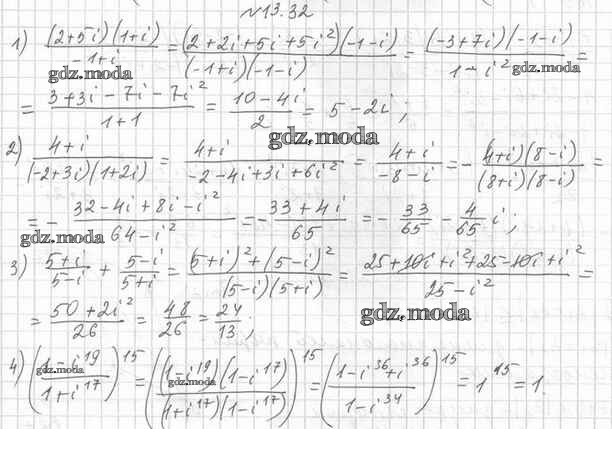 №13.32
1) (2+5i)(1+i)/(-1+i) = (2+2i+5i+5i²)(-1-i)/((-1+i)(-1-i)) = (-3+7i)(-1-i)/(1-i²) =
gdz.moda gdz.moda
= (3+3i-7i-7i²)/(1+1) = (10-4i)/2 = 5-2i;
gdz.moda
2) (4+i)/((-2+3i)(1+2i)) = (4+i)/(-2-4i+3i+6i²) = (4+i)/(-8-i) = -(4+i)(8-i)/((8+i)(8-i)) =
= -(32-4i+8i-i²)/(64-i²) = -(33+4i)/65 = -33/65 - 4/65 i;
gdz.moda
3) (5+i)/(5-i) + (5-i)/(5+i) = ((5+i)²+(5-i)²)/((5-i)(5+i)) = (25+10i+i²+25-10i+i²)/(25-i²) =
gdz.moda
= (50+2i²)/26 = 48/26 = 24/13;
4) ((1-i¹⁹)/(1+i¹⁷))¹⁵ = ((1-i¹⁹)(1-i¹⁷)/((1+i¹⁷)(1-i¹⁷)))¹⁵ = ((1-i³⁶+i³⁶)/(1-i³⁴))¹⁵ = 1¹⁵ = 1.
gdz.moda gdz.moda